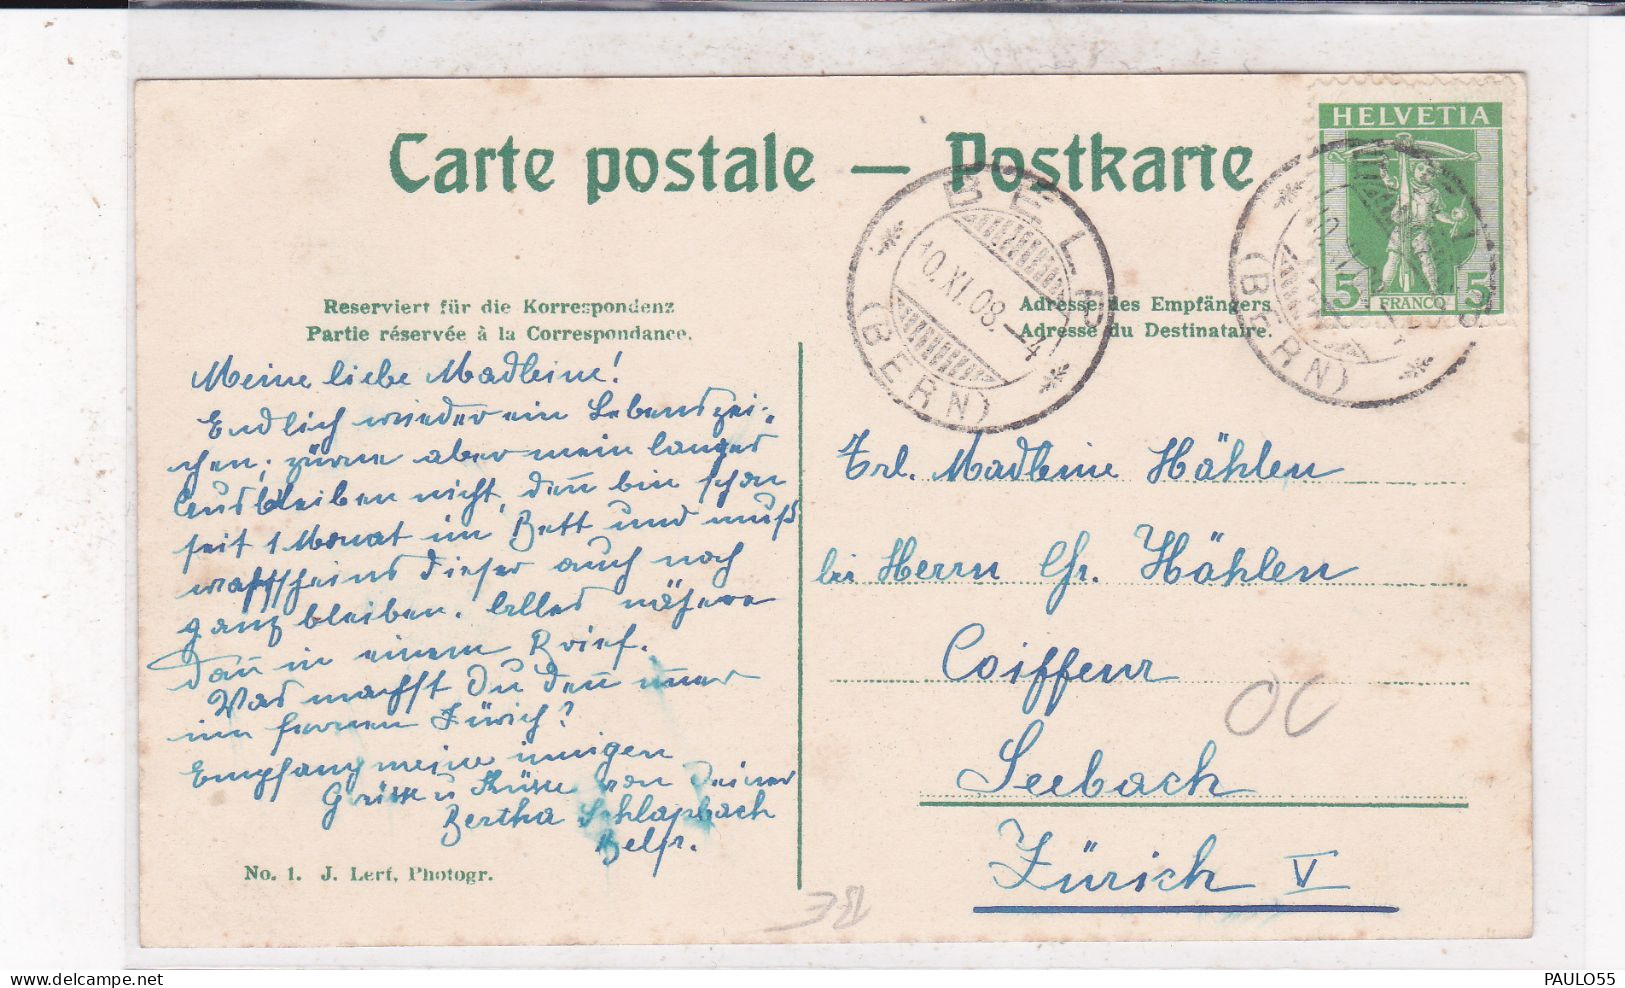 HELVETIA
5 FRANCO 5
Carte postale — Postkarte
BELP
10.XI.08.–4
(BERN)
(BERN)
Reserviert für die Korrespondenz
Partie réservée à la Correspondance.
Adresse des Empfängers
Adresse du Destinataire.
Meine liebe Madleine!
Endlich wieder ein Lebenszei-
chen; zürne aber mein langes
Ausbleiben nicht, den̅ bin schon
seit 1 Monat im Bett und muß
dieser auch noch
ganz bleiben. Alles nähere
dan̅ in einem Brief.
Was machst Du den̅ im̅er
im fernen Zürich?
Empfang meine innigen
Grüsse u Küsse von Deiner
Bertha Schlapbach
Belp.
Frl. Madleine Hählen
bei Herrn Chr. Hählen
Coiffeur
Seebach
Zürich V
OC
BE
No. 1. J. Lerf, Photogr.
PAULO55